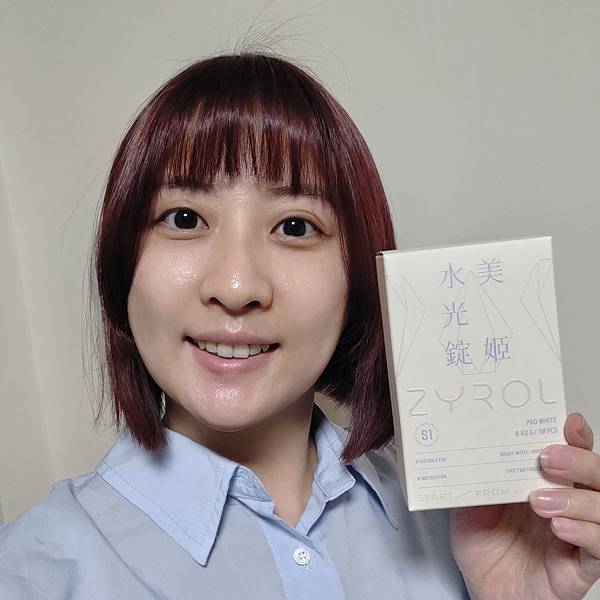 美姬
水光錠
ZYROL
PRO WHITE
0.62 G / 30 PCS
S1
# SUITABLE FOR
BRIGHT WHITE /
# INSTRUCTION
TAKE TWO
START FROM